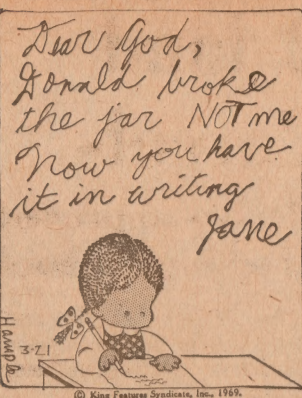 Dear God,
Donald broke
the jar NOT me
Now you have
it in writing
Jane
Hample
3-21
© King Features Syndicate, Inc., 1969.